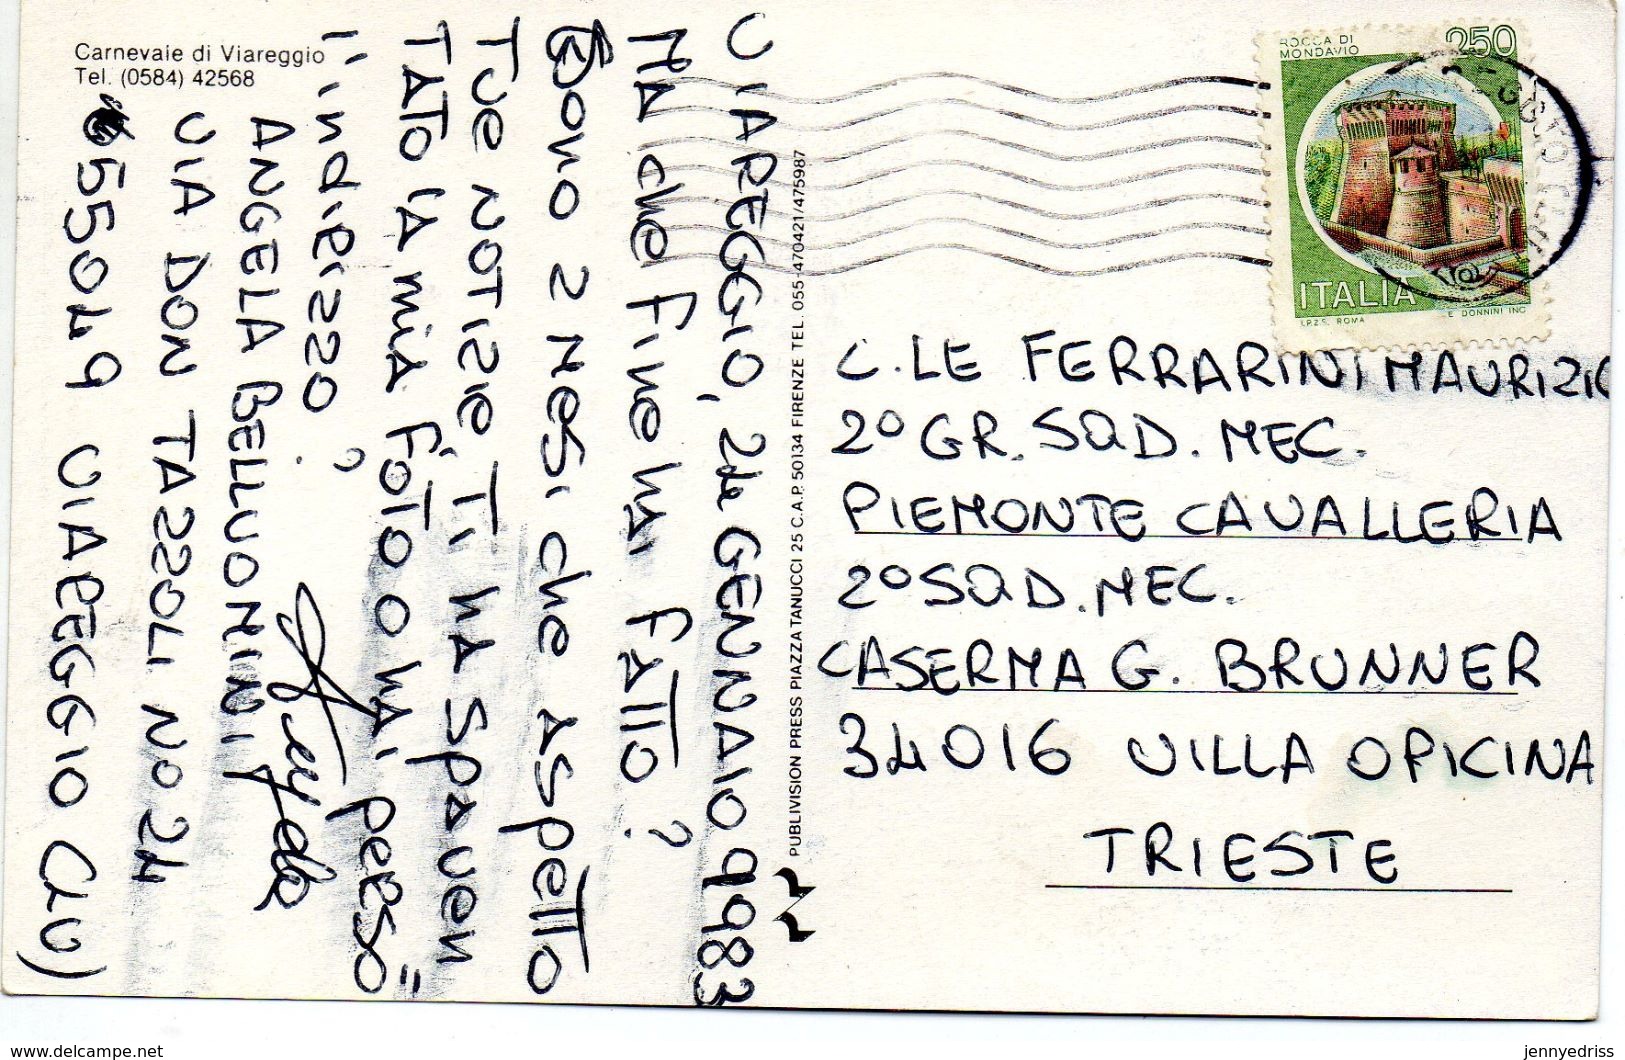 Carnevale di Viareggio
Tel. (0584) 42568
VIAREGGIO, 24 GENNAIO 1983
MA che fine hai fatto?
Sono 2 mesi che aspetto
tue notizie, ti ha spaven
tato la mia foto o hai perso
l'indirizzo?
ANGELA BELLUOMINI
VIA DON TAZZOLI No 24
55049 VIAREGGIO (LU)
PUBLIVISION PRESS PIAZZA TANUCCI 25 C.A.P. 50134 FIRENZE TEL. 055-470421/475987
ROCCA DI
MONDAVIO
250
ITALIA
I.P.Z.S. ROMA
E. DONNINI INC.
C.LE FERRARINI MAURIZIO
2° GR. SQD. MEC.
PIEMONTE CAVALLERIA
2° SQD. MEC.
CASERMA G. BRUNNER
34016 VILLA OPICINA
TRIESTE
www.delcampe.net
jennyedriss